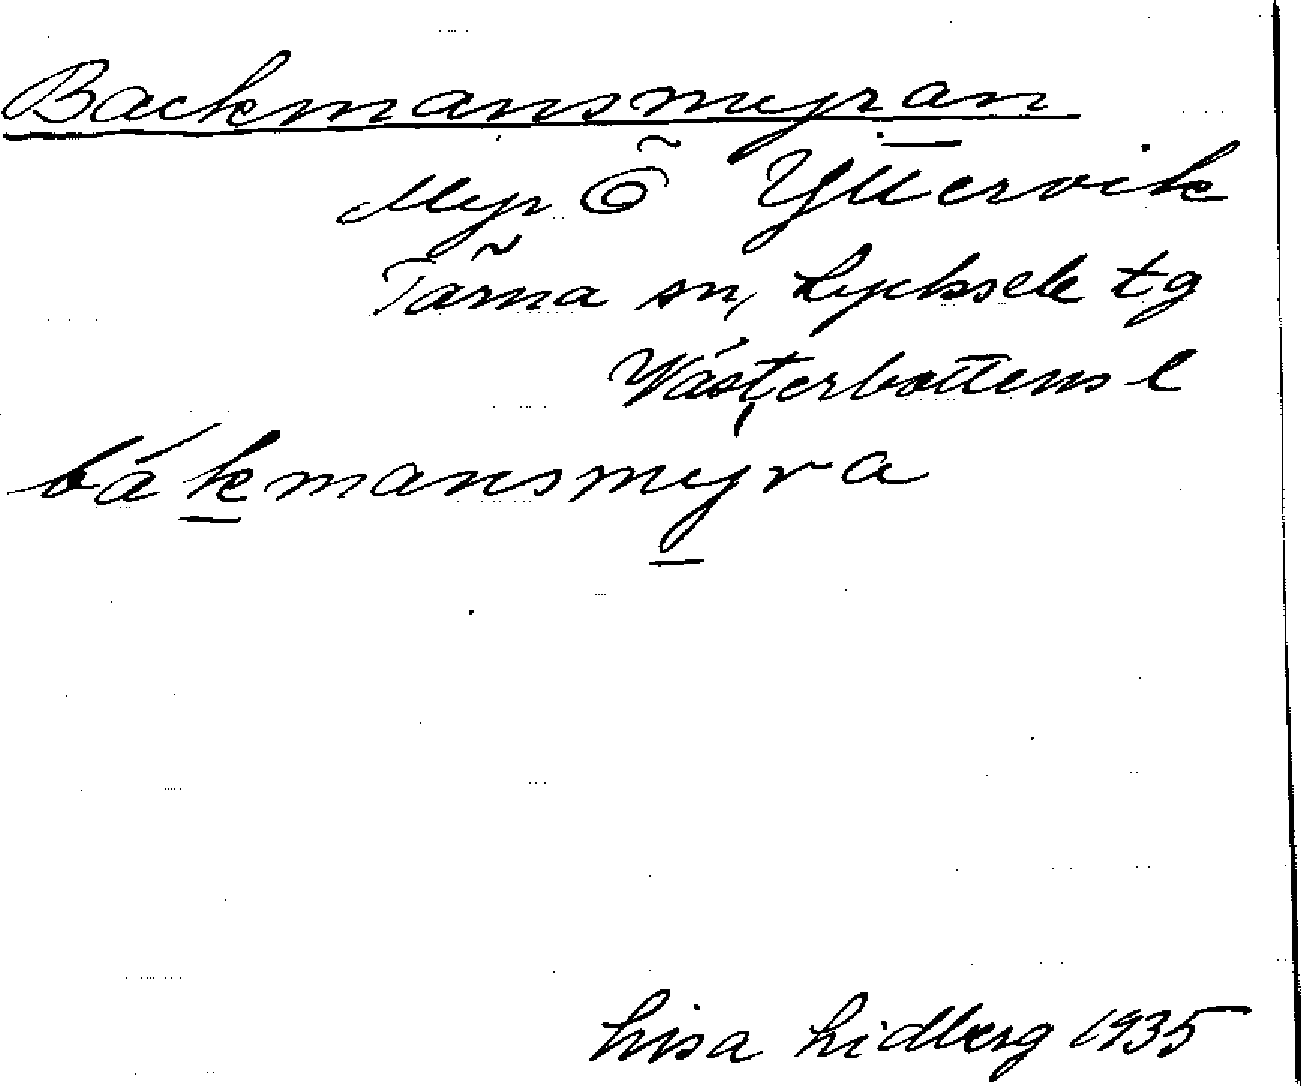 Backmansmyran
Myr Ö Yttervik
Tärna sn, Lycksele tg
Västerbottens l
bákmansmyra
Lisa Lidberg 1935